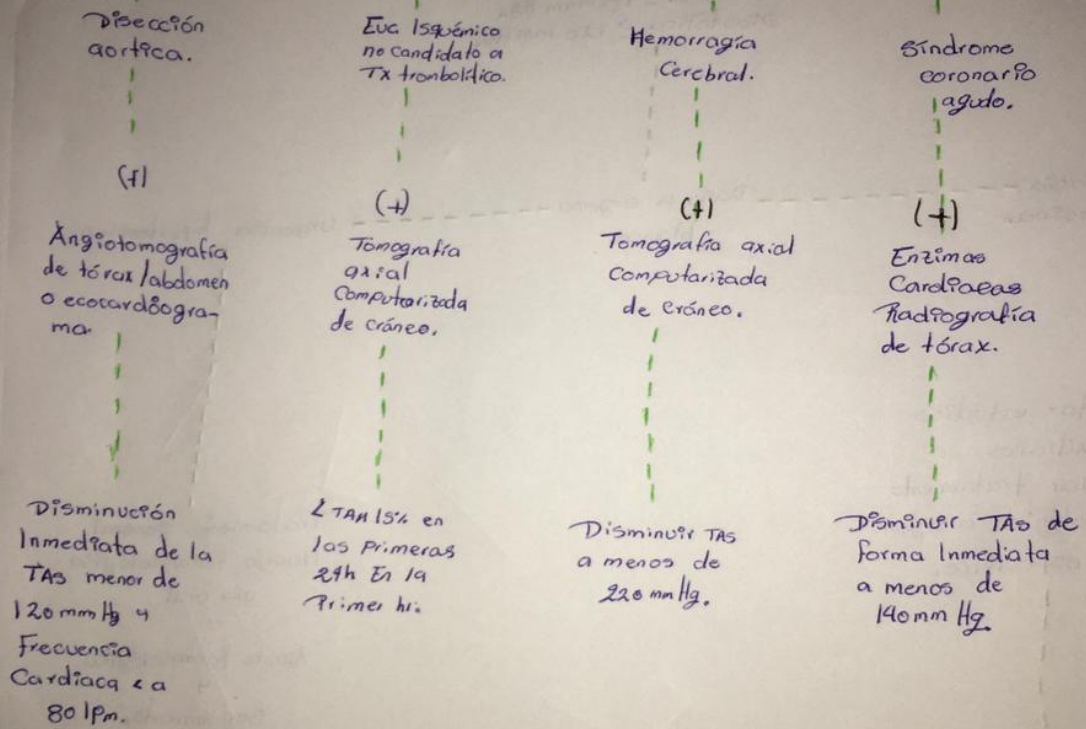 Disección
aortica.
(+)
Angiotomografía
de tórax/abdomen
o ecocardiogra-
ma.
Disminución
Inmediata de la
TAS menor de
120 mm Hg y
Frecuencia
Cardiaca < a
80 lpm.
Evc Isquémico
no candidato a
Tx trombolitico.
(+)
Tomografía
axial
Computarizada
de cráneo.
< TAM 15% en
las Primeras
24h En la
Primer hr.
Hemorragia
Cerebral.
(+)
Tomografia axial
computarizada
de cráneo.
Disminuir TAS
a menos de
220 mm Hg.
síndrome
coronario
agudo.
(+)
Enzimas
Cardiacas
Radiografía
de tórax.
Disminuir TAS de
forma Inmediata
a menos de
140 mm Hg.